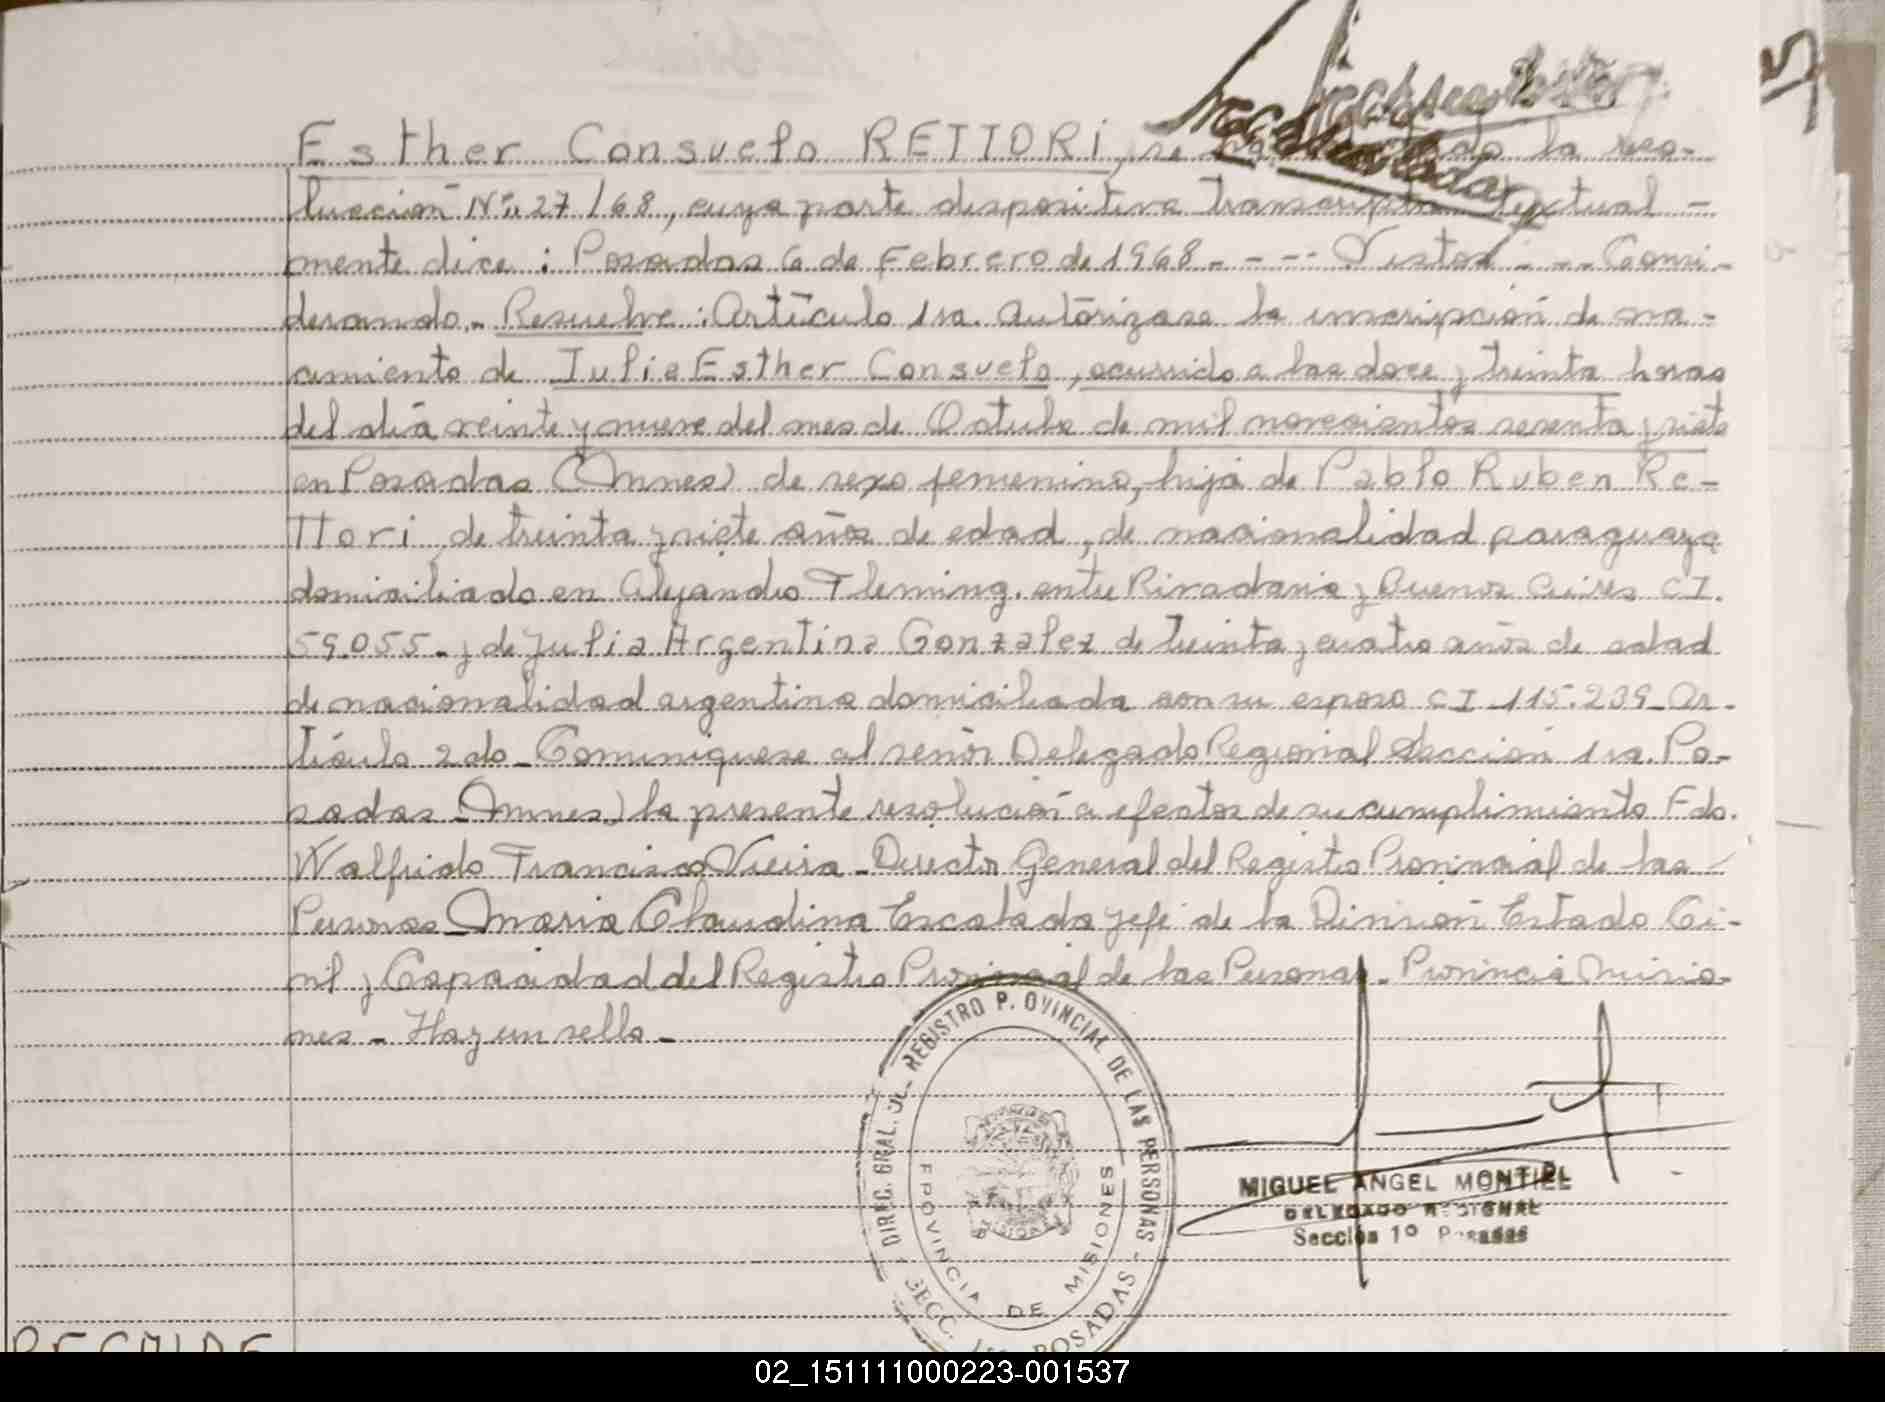 Esther Consuelo RETTORI, se la reso-
lucción Nº 27/68, cuya parte dispositiva transcripta textual-
mente dice: Posadas 6 de Febrero de 1968 - - - - Vistos - - - Consi-
derando.- Resuelve: Artículo 1ra. Autórizase la inscripción de na-
cimiento de Julia Esther Consuelo, ocurrido a las doce y treinta horas
del día veinte y nueve del mes de Octubre de mil novecientos sesenta y siete
en Posadas (Mnes) de sexo femenino, hija de Pablo Ruben Re-
ttori, de treinta y siete años de edad, de nacionalidad paraguaya
domiciliado en Alejandro Fleming. entre Rivadavia y Buenos Aires CI.
59.055.- y de Julia Argentina Gonzalez de treinta y cuatro años de edad
de nacionalidad argentina domiciliada con su esposo CI 115.239- Ar-
tículo 2do- Comuniquese al señor Delegado Regional Sección 1ra. Po-
sadas-(Mnes) la presente resolución a efectos de su cumplimiento Fdo.
Walfrido Francisco Vieira- Director General del Registro Provincial de las
Personas- Maria Claudina Escalada Jefe de la División Estado Ci-
vil y Capacidad del Registro Provincial de las Personas- Provincia Misio-
nes- Hay un sello-
DIREC. GRAL. REGISTRO P. OVINCIAL DE LAS PERSONAS - SECC. POSADAS -
PROVINCIA DE MISIONES
MIGUEL ANGEL MONTIEL
DELEGADO REGIONAL
Sección 1º Posadas
02_151111000223-001537